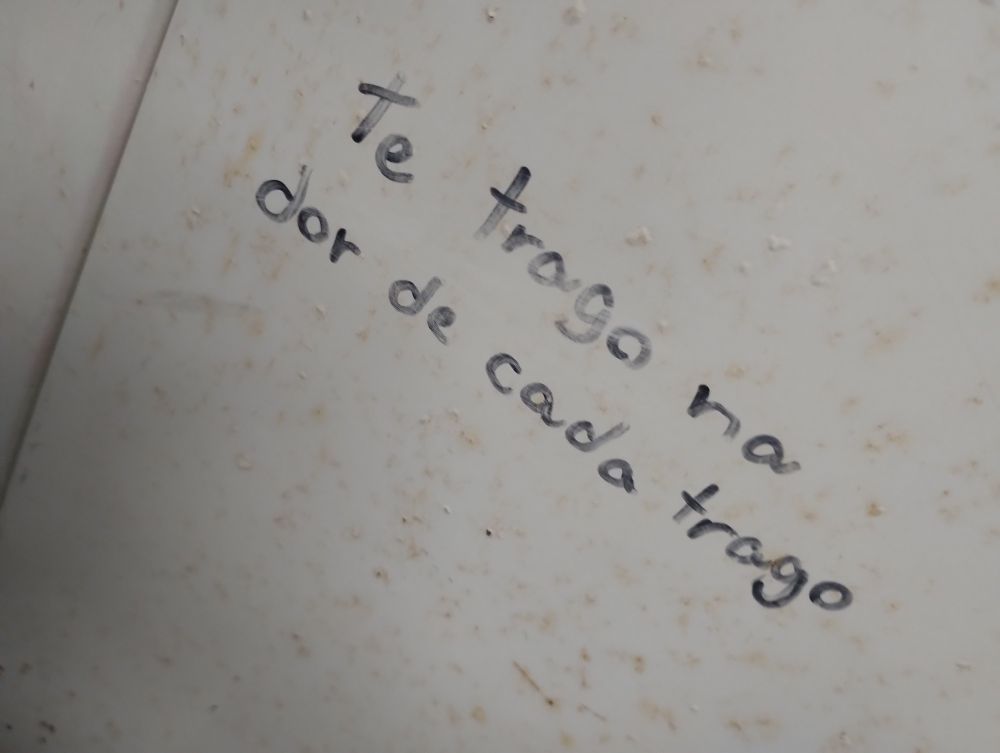 Te trago na
dor de cada trago